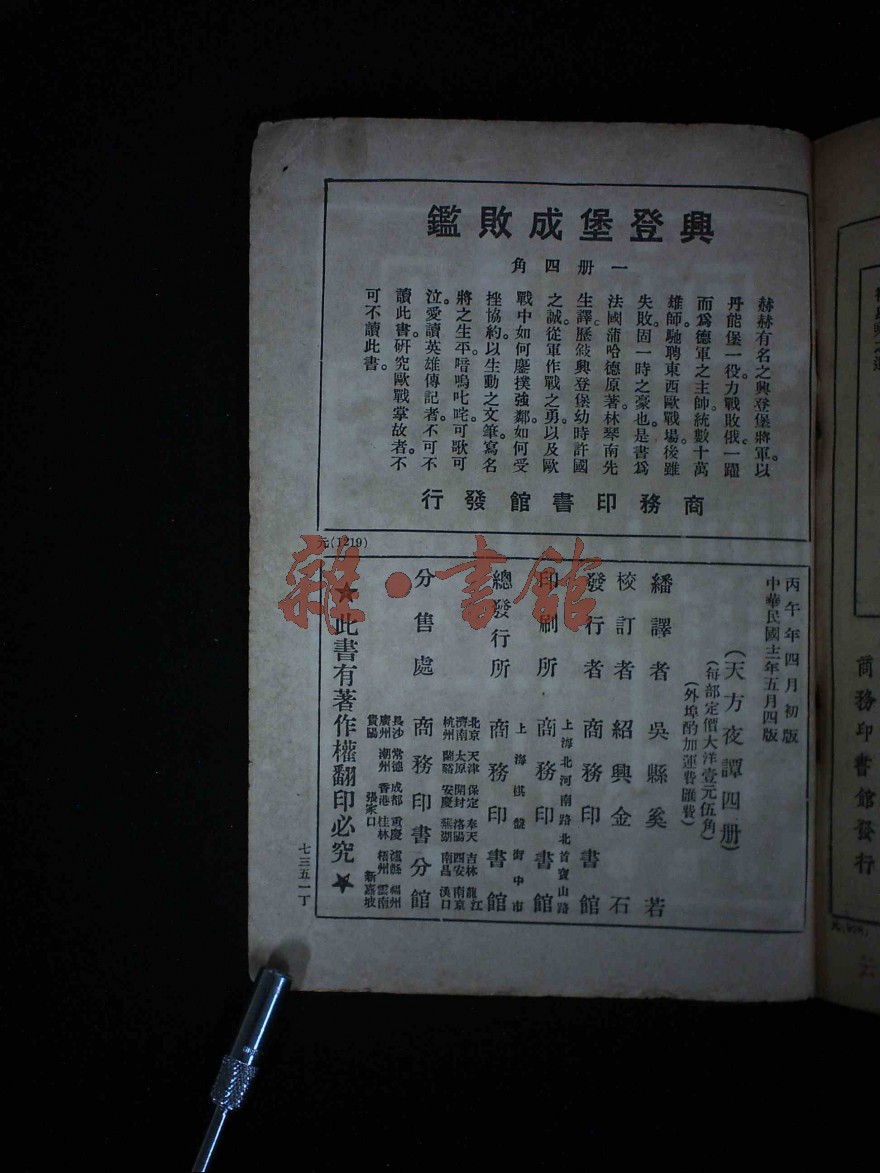 興登堡成敗鑑
一册四角
赫赫有名之興登堡將軍。以
丹能堡一役。力戰敗俄。一躍
而爲德軍之主帥。統數十萬
雄師。馳騁東西歐戰場。後雖
失敗。固一時之豪也。是書爲
法國蒲哈德原著。林琴南先
生譯。歷敍興登堡幼時許國
之誠。從軍作戰之勇。以及歐
戰中如何鏖撲強鄰。如何受
挫協約。以生動之文筆。寫名
將之生平。喑嗚叱咤。可歌可
泣。愛讀英雄傳記者。不可不
讀此書。研究歐戰掌故者。不
可不讀此書。
商務印書館發行
元(1219)
丙午年四月初版
中華民國十二年五月四版
(天方夜譚四册)
(每部定價大洋壹元伍角)
(外埠酌加運費匯費)
繙譯者 吳縣奚若
校訂者 紹興金石
發行者 商務印書館
上海北河南路北首寶山路
印刷所 商務印書館
上海棋盤街中市
總發行所 商務印書館
北京 天津 保定 奉天 吉林 龍江
濟南 太原 開封 洛陽 西安 南京
杭州 蘭谿 安慶 蕪湖 南昌 漢口
分售處 商務印書分館
長沙 常德 成都 重慶 瀘縣 福州
廣州 潮州 香港 桂林 梧州 雲南
貴陽 張家口 新嘉坡
★此書有著作權翻印必究★
七三五一丁
雜·書館
商務印書館發行